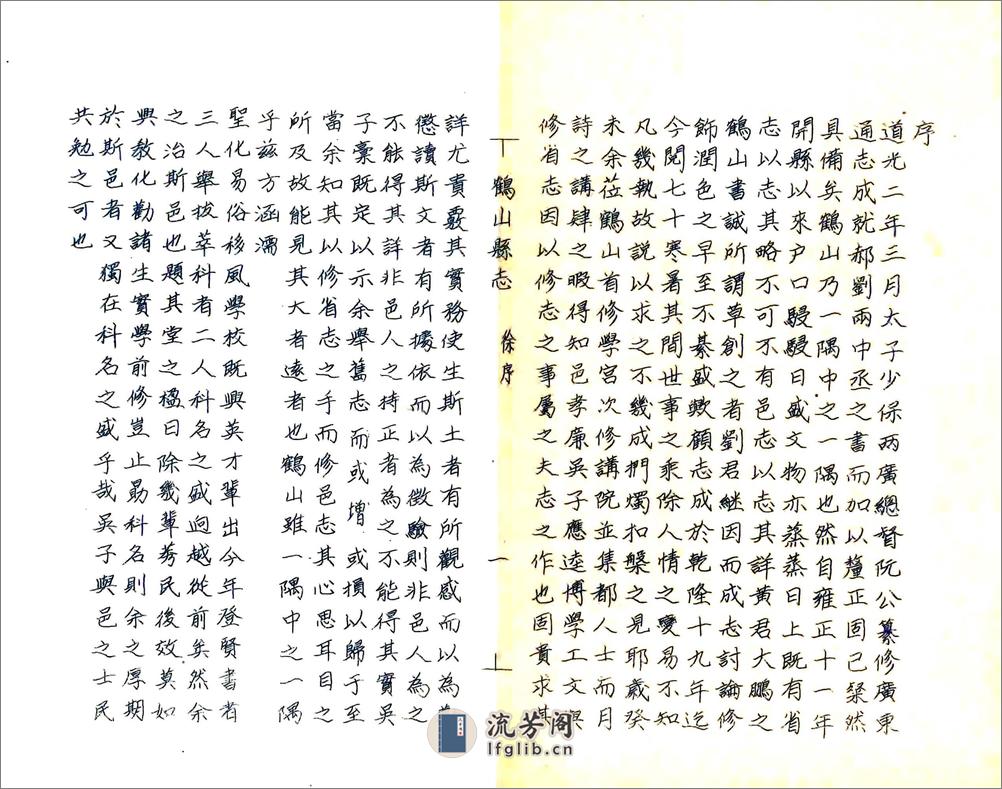 序
道光二年三月太子少保兩廣總督阮公纂修廣東
通志成就郝劉兩中丞之書而加以釐正固已粲然
具備矣鶴山乃一隅中之一隅也然自雍正十一年
開縣以來户口駸駸日盛文物亦蒸蒸日上既有省
志以志其略不可不有邑志以志其詳黃君大鵬之
鶴山書誠所謂草創之者劉君継因而成志討論修
飾潤色之早至不綦盛歟顧志成於乾隆十九年迄
今閱七十寒暑其間世事之乘除人情之變易不知
凡幾執故説以求之不幾成捫燭扣槃之見耶歳癸
未余莅鶴山首修學宮次修講院並集都人士而月
詩之講肆之暇得知邑孝廉吳子應逵博學工文與
修省志因以修志之事屬之夫志之作也固貴求其
鶴山縣志
徐序
一
詳尤貴覈其實務使生斯土者有所觀感而以為
懲讀斯文者有所據依而以為徴驗則非邑人為之
不能得其詳非邑人之持正者為之不能得其實吳
子稾既定以示余舉舊志而或增或損以歸于至
當余知其以修省志之手而修邑志其心思耳目之
所及故能見其大者遠者也鶴山雖一隅中之一隅
乎兹方涵濡
聖化易俗移風學校既興英才輩出今年登賢書者
三人舉拔萃科者二人科名之盛逈越從前矣然余
之治斯邑也題其堂之楹曰除幾輩莠民後效莫如
興教化勸諸生實學前修豈止勗科名則余之厚期
於斯邑者又獨在科名之盛乎哉吳子與邑之士民
共勉之可也
流芳阁
lfglib.cn